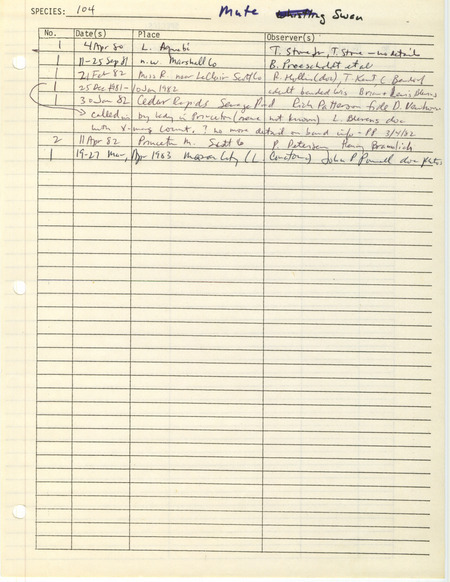 SPECIES: 104 Mute Whistling Swan
No. Date(s) Place Observer(s)
1 4 Apr 80 L. T. Stone Jr, T. Stone - no detail
1 11-25 Sep 81 n.w. Marshall Co B. Proescholdt et al
1 21 Feb 82 Miss R. near LeClair Scott Co P. (doc), T. Kent, C. Bendorf
1 25 Dec 1981- 10 Jan 1982 adult banded Brian + Lewis Blevins
1 30 Jan 82 Cedar Rapids Sewage Pond Rich Patterson fide D.
called in by lady in Princeton (name not known) L. Blevins doc
with X-mas count. ? no more details on band info - PP 3/4/82
2 11 Apr 82 Princeton M. Scott Co P. Petersen, Harry Bramlich
1 19-27 Mar, Apr 1983 Mason City (L. ) John P. doc photos